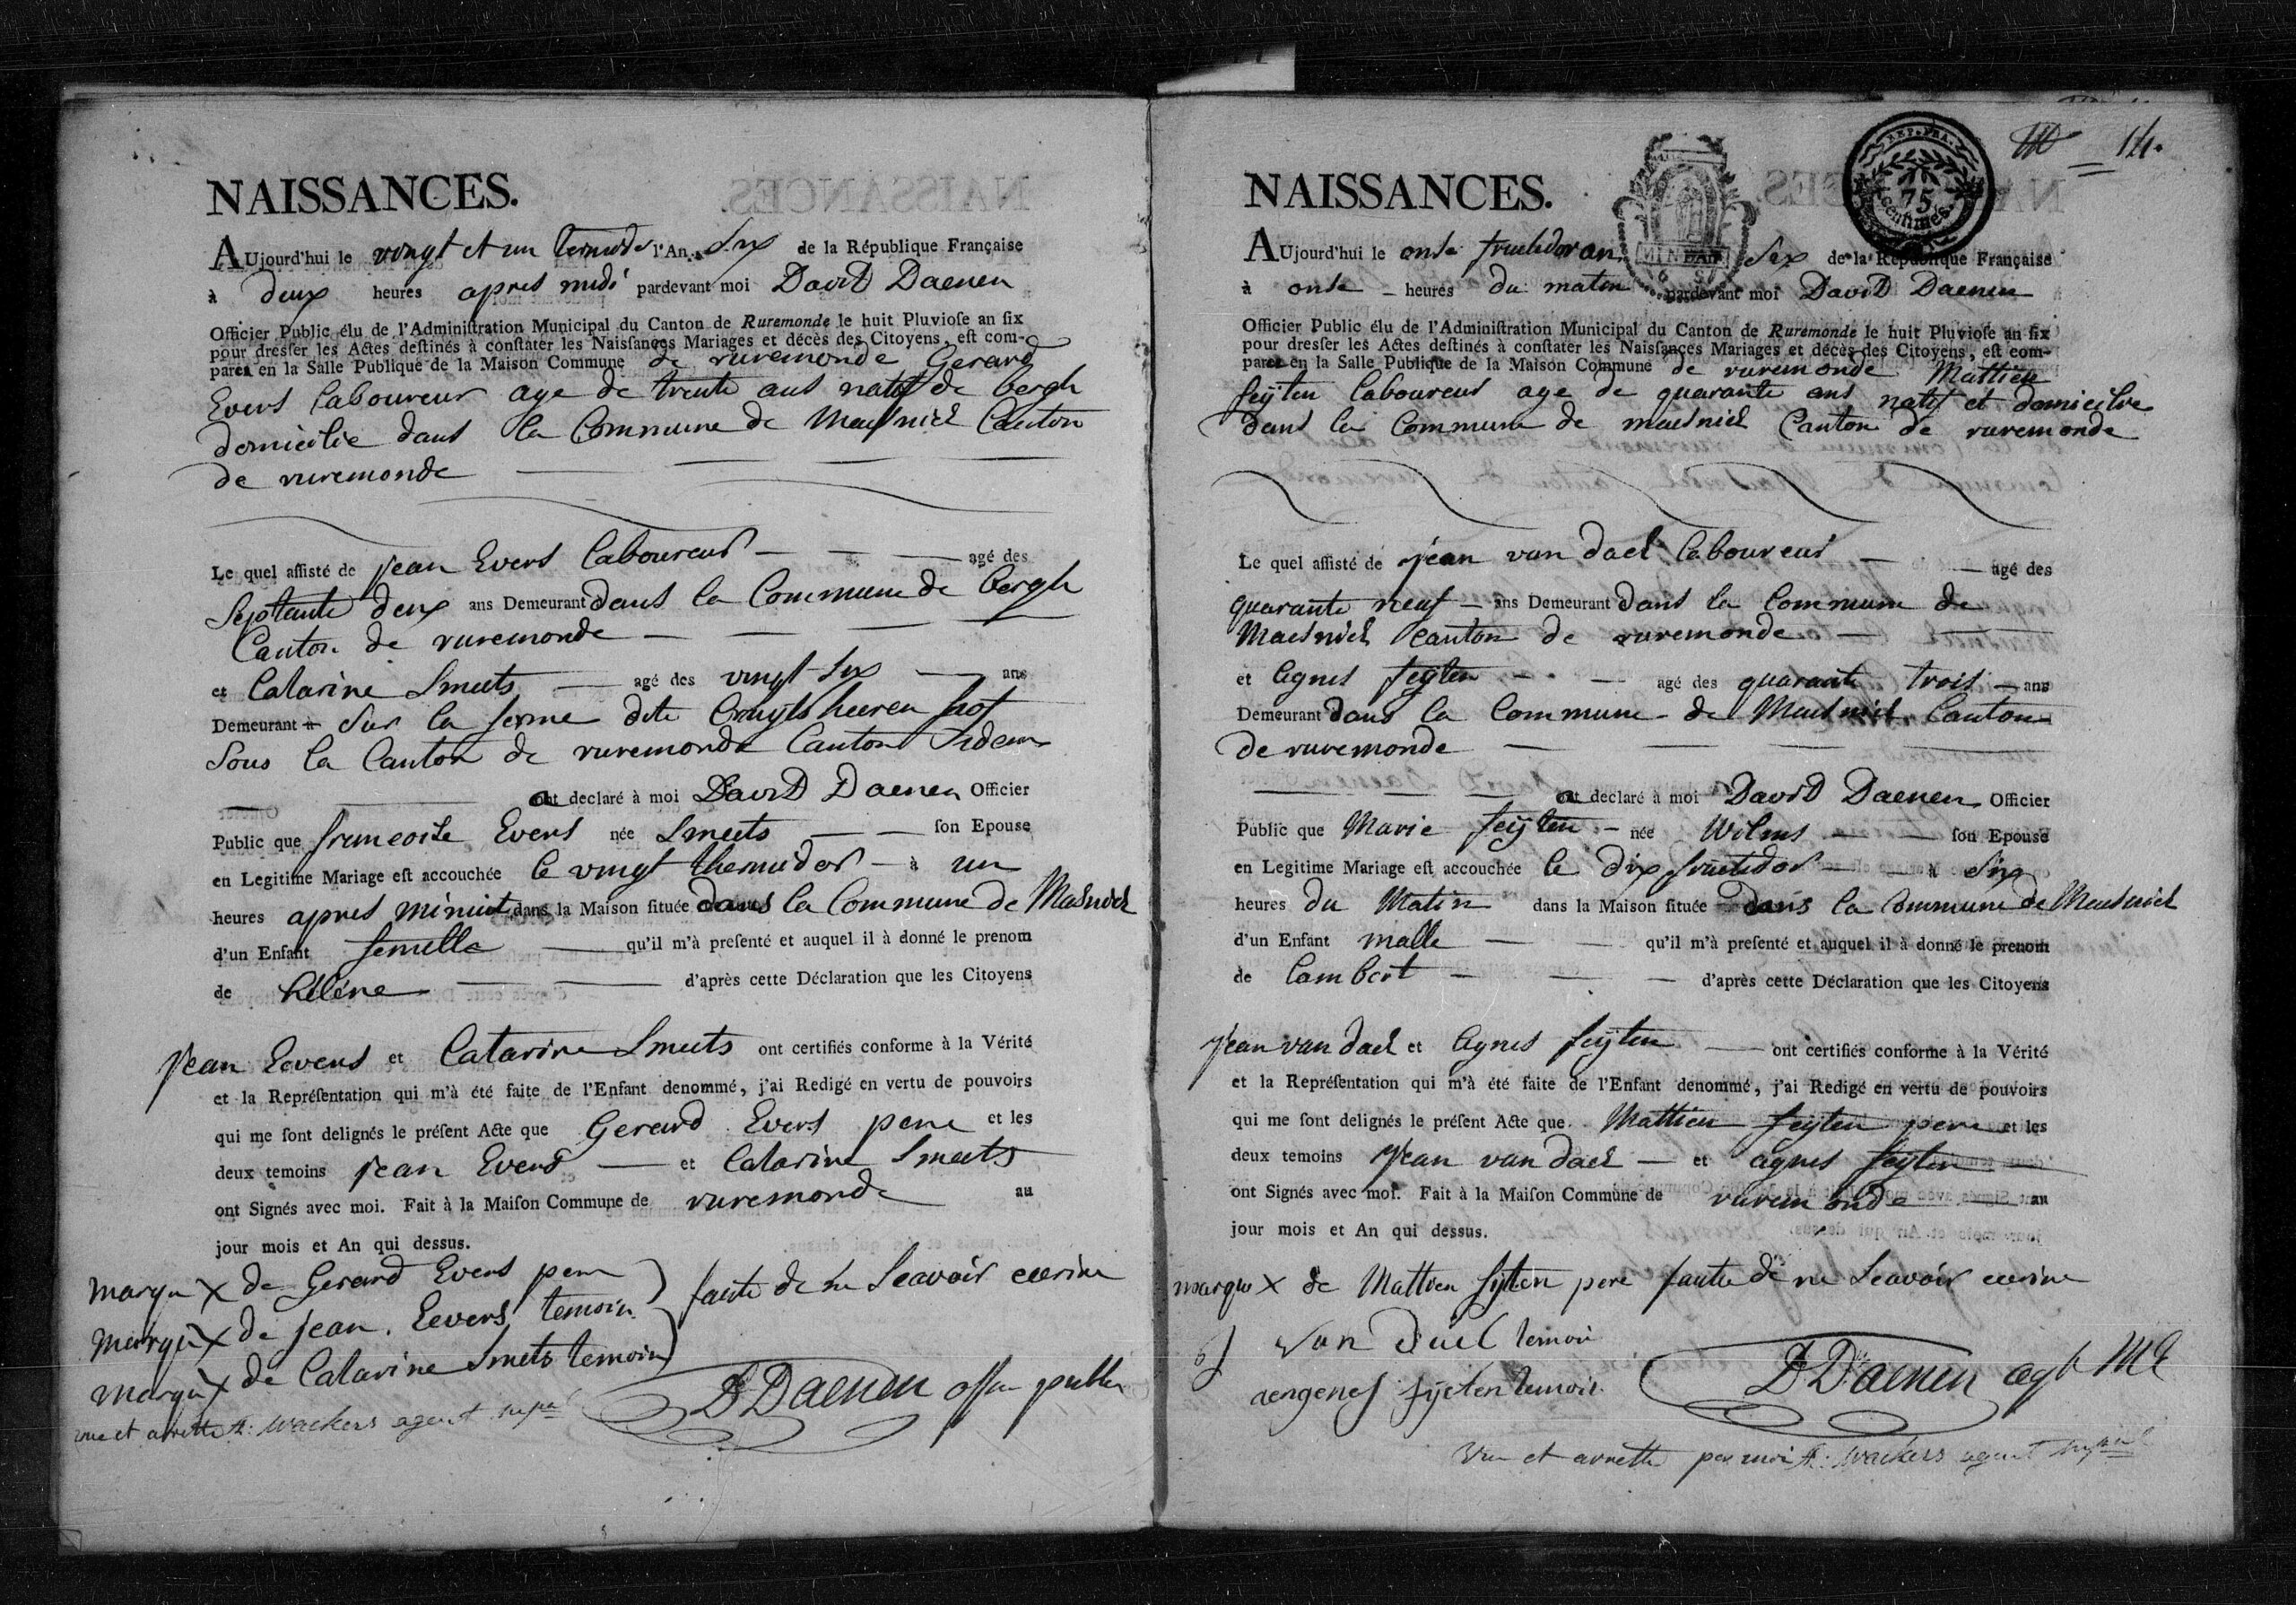 NAISSANCES.
AUjourd'hui le vingt et un termidor l'An Six de la République Française
à deux heures apres midi pardevant moi David Daenen
Officier Public élu de l'Adminiſtration Municipal du Canton de Ruremonde le huit Pluvioſe an ſix
pour dresſer les Actes deſtinés à conſtater les Naisſances Mariages et décès des Citoyens, eſt com-
parea en la Salle Publique de la Maison Commune de ruremonde Gerard
Evers laboureur age de trente ans natif de bergh
domicilie dans la Commune de Maesniel Canton
de ruremonde
Le quel aſſiſté de jean Evers laboureur agé des
Septante deux ans Demeurant dans la Commune de bergh
Canton de ruremonde
et Catarine Smeets agé des vingt six ans
Demeurant à Sur la ferme dite Cruijtsheeren hof
Sous la Canton de ruremonde Canton Idem
ont declaré à moi David Daenen Officier
Public que francoise Evers née Smeets ſon Epouse
en Legitime Mariage eſt accouchée le vingt thermidor à un
heures apres minuit dans la Maison ſituée dans la Commune de Masniel
d'un Enfant femelle qu'il m'à preſenté et auquel il à donné le prenom
de héléne d'après cette Déclaration que les Citoyens
Jean Eevens et Catarine Smeets ont certifiés conforme à la Vérité
et la Repréſentation qui m'à été faite de l'Enfant denommé, j'ai Redigé en vertu de pouvoirs
qui me ſont delignés le préſent Acte que Gerard Evers pere et les
deux temoins jean Evers et Catarine Smeets
ont Signés avec moi. Fait à la Maiſon Commune de ruremonde au
jour mois et An qui dessus.
marque X de Gerard Evers pere
marque X de jean Eevers temoin faute de ne Scavoir ecrire
marque X de Catarine Smets temoin
D Daenen offi public
vue et arrette A: Wackers agent mpal
14.
REP. FRA.
75
centimes
NAISSANCES.
AUjourd'hui le onse fructidor an Six de la République Française
à onse heures du matin pardevant moi David Daenen
Officier Public élu de l'Adminiſtration Municipal du Canton de Ruremonde le huit Pluvioſe an ſix
pour dresſer les Actes deſtinés à conſtater les Naisſances Mariages et décès des Citoyens, eſt com-
paree en la Salle Publique de la Maison Commune de ruremonde Mattieu
feijten laboureur age de quarante ans natif et domicilie
dans la Commune de maesniel Canton de ruremonde
Le quel aſſiſté de jean van dael laboureur agé des
quarante neuf ans Demeurant dans la Commune de
Maesniel Canton de ruremonde
et Agnes feijten agé des quarante trois ans
Demeurant dans la Commune de Maesniel Canton
de ruremonde
ont declaré à moi David Daenen Officier
Public que Marie feijten née Wilms ſon Epouse
en Legitime Mariage eſt accouchée le dix fructidor à Six
heures du Matin dans la Maison ſituée dans la Commune de Maesniel
d'un Enfant malle qu'il m'à preſenté et auquel il à donné le prenom
de Lambert d'après cette Déclaration que les Citoyens
Jean van dael et Agnes feijten ont certifiés conforme à la Vérité
et la Repréſentation qui m'à été faite de l'Enfant denommé, j'ai Redigé en vertu de pouvoirs
qui me ſont delignés le préſent Acte que Mattieu feijten pere et les
deux temoins Jean van dael et agnes feijten
ont Signés avec moi. Fait à la Maiſon Commune de ruremonde au
jour mois et An qui dessus.
marque X de Mattieu fijten pere faute de ne Scavoir ecrire
van dael temoin
aengenes fijeten temoin
D Daenen agt ML
Vue et arrette par moi A: Wackers agent mpal